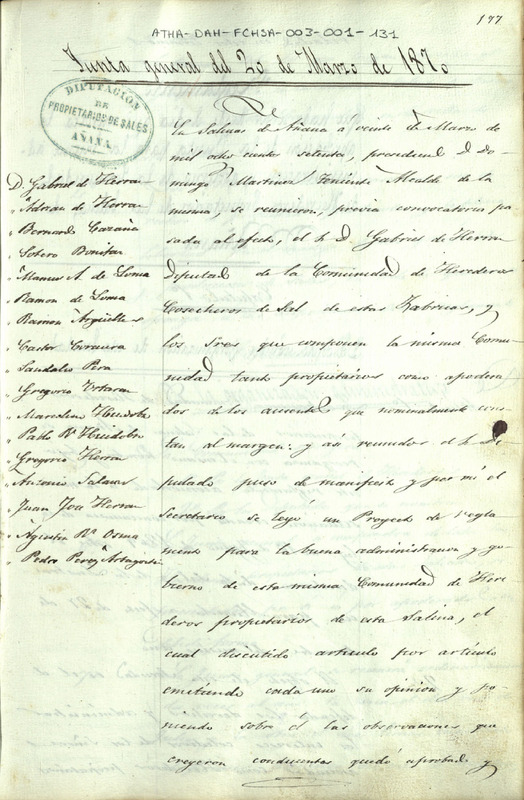 177
ATHA-DAH-FCHSA-003-001-131
Junta general del 20 de Marzo de 1870
DIPUTACION
DE
PROPIETARIOS DE SALES
AÑANA
D. Gabriel de Herran
" Adrian de Herran
" Bernardo Cazaña
" Sotero Bonifaz
" Manuel A. de Loma
" Ramon de Loma
" Ramon Argüelles
" Castor
" Sandalio Pera
" Gregorio Ortaran
" Marcelino
" Pablo Rz Huidobro
" Gregorio Herran
" Antonio Salazar
" Juan Joa Herran
" Agustin Rz Osma
" Pedro Perez
En Salinas de Añana a veinte de Marzo de
mil ocho cientos setenta, presidiendo D. Do-
mingo Martinez Teniente Alcalde de la
misma, se reunieron, previa convocatoria pa
sada al efecto, el Sr D. Gabriel de Herran
Diputado de la Comunidad de Herederos
Cosecheros de Sal de estas Fabricas, y
los Sres que componen la misma Comu-
nidad tanto propietarios como apodera-
dos de los ausentes que nominalmente cons-
tan al margen: y asi reunidos el Sr Di-
putado puso de manifiesto y por mi el
Secretario se leyó un Proyecto de regla-
mento para la buena administracion y go-
bierno de esta misma Comunidad de Here
deros propietarios de esta Salina, el
cual discutido articulo por articulo
emitiendo cada uno su opinion y po-
niendo sobre él las observaciones que
creyeron conducentes quedó aprobado y